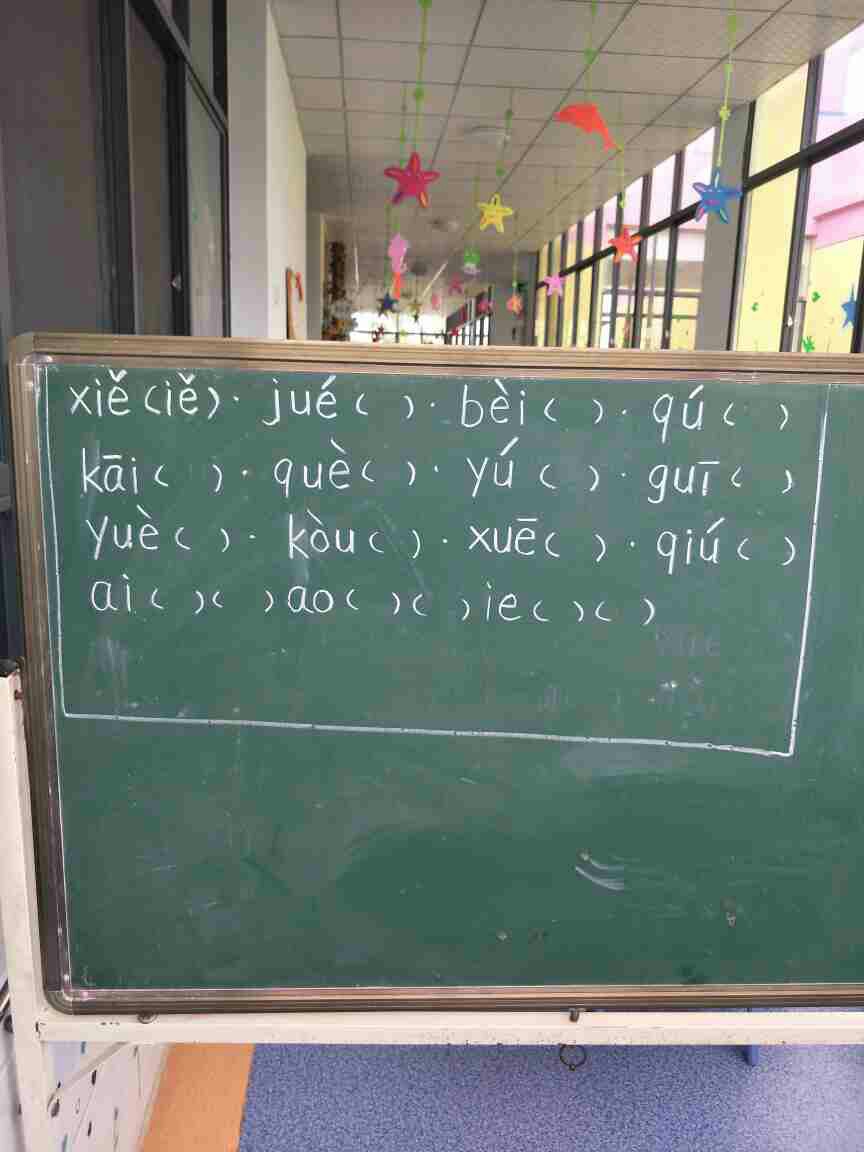 xiě (iě) · jué ( ) · bèi ( ) · qú ( )
kāi ( ) · què ( ) · yú ( ) · guī ( )
yuè ( ) · kòu ( ) · xuē ( ) · qiú ( )
ai ( ) ( ) ao ( ) ( ) ie ( ) ( )